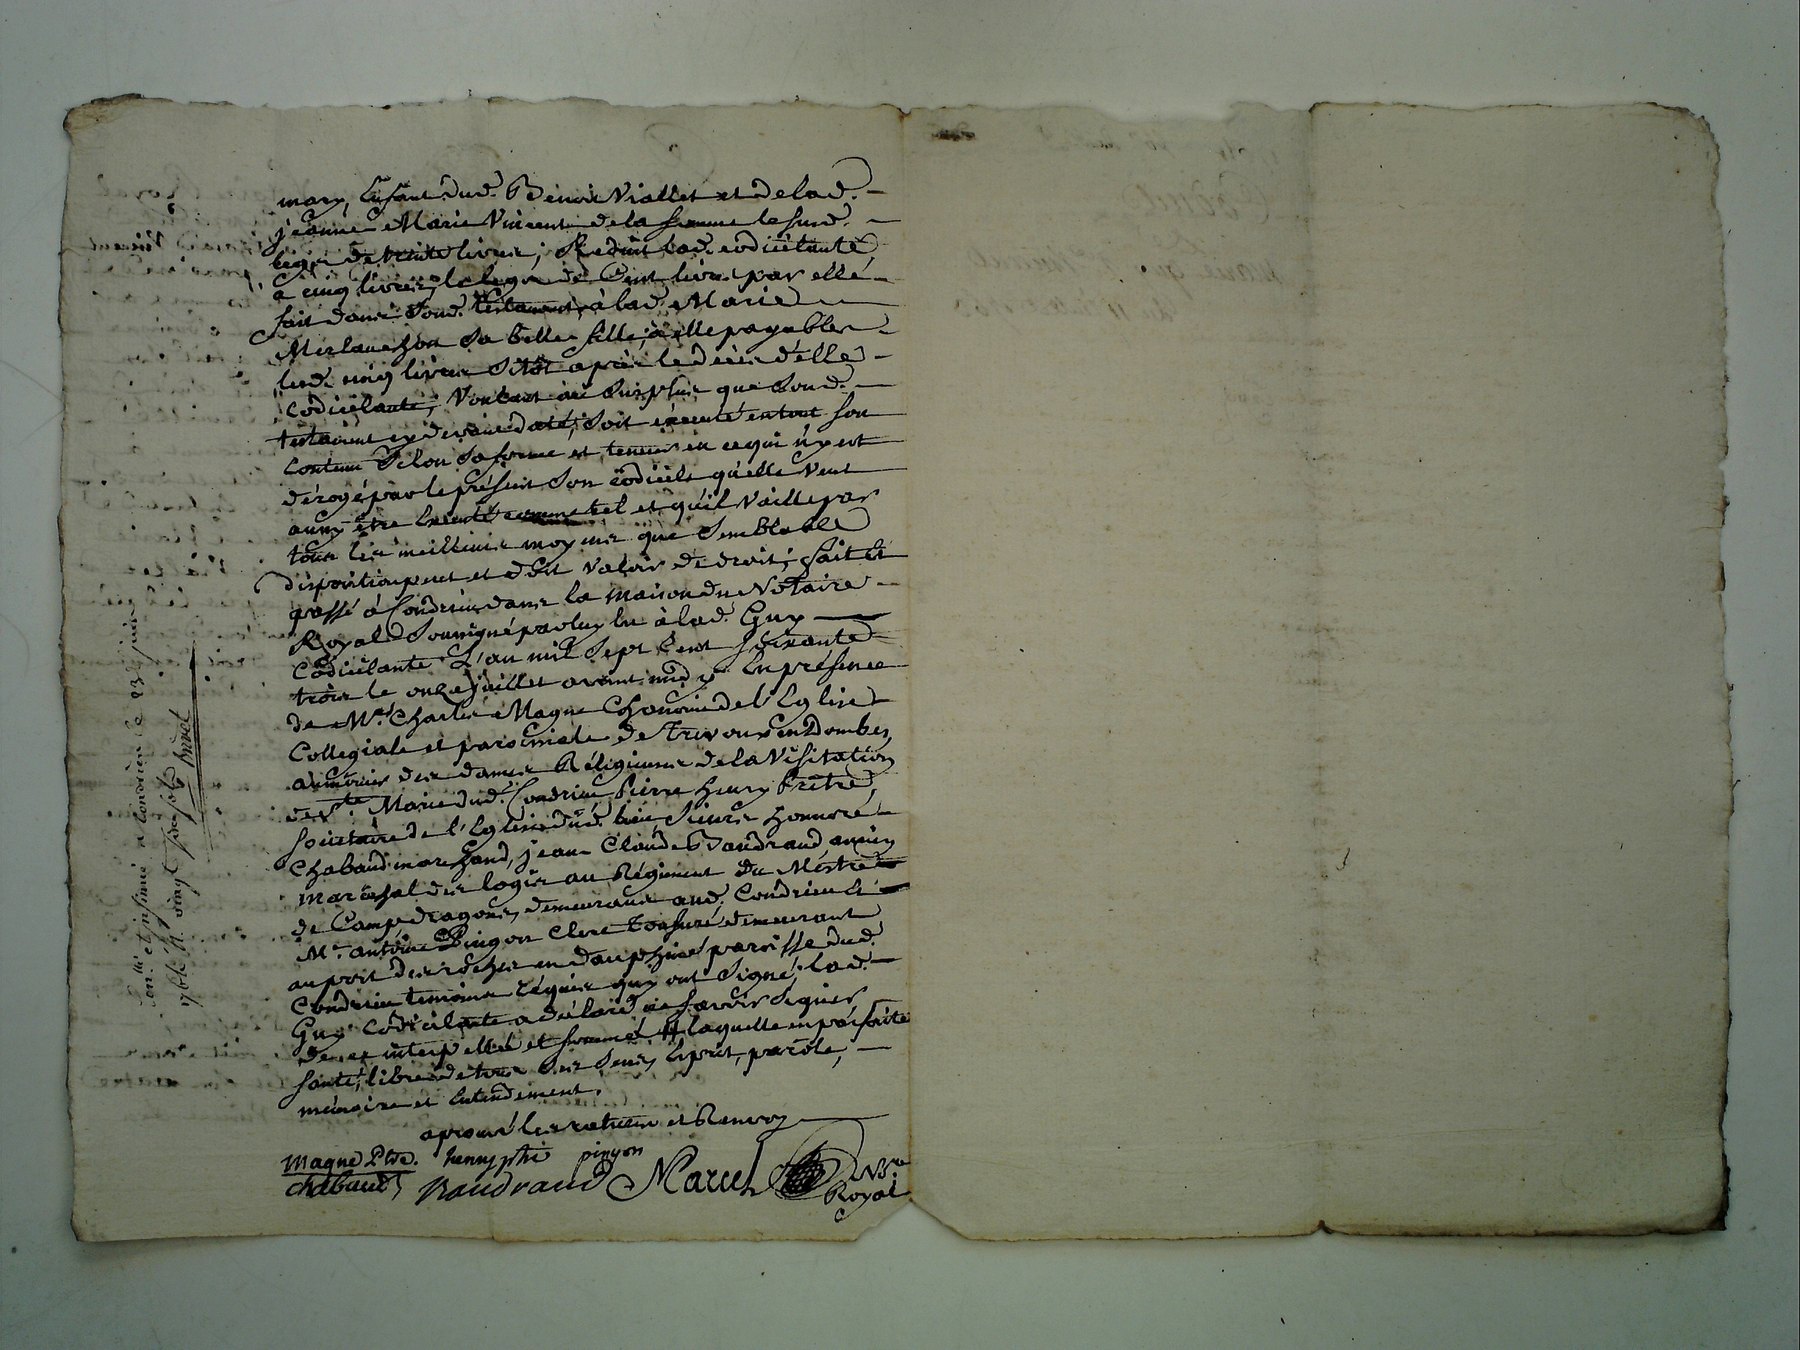 mary, Enfant dud. Benoit Viallet et de lad.
jeanne Marie Vincent de la somme le susd.
legs de trente livres, Reduit lad. codicilante
a cinq livres le legs de Cent livres par elle
fait dans sond. testament, a lad. Marie
sa belle fille, a elle payables
lesd. cinq livres sitôt après le décès d'elle
codicilante; Voulant au surplus que sond.
testament cy devant daté, soit executé en tout son
contenu selon sa forme et teneur en ce qui n'y est
dérogé par le présent son codicile qu'elle Veut
aussy être Executé comme tel et qu'il Vaille par
tous les meilleurs moyens que semblable
disposition peut et doit valoir de droit; fait et
passé à Condrieu dans la maison du Notaire
Royal soussigné par luy lu à lad. Guy
Codicilante L'an mil sept Cent soixante
trois le onze juillet avant midy En présence
de Mre. Charles Magne Chanoine de l'Eglise
Collegiale et paroissiale de Trevoux en Dombes,
aumônier des dames Religieuses de la Visitation
de Ste. Marie dud. Condrieu, Pierre henry Prêtre,
societaire de l'Eglise dud. lieu, sieurs honnoré
Chabaud marchand, jean Claude Baudrand, ancien
maréchal des logis au Régiment du Mestre
de Camp, dragons, demeurants aud. Condrieu et
Me. antoine Pingon Clerc tonsuré demeurant
au port des roches en dauphiné paroisse dud.
Condrieu temoins requis qui ont signé, lad.
Guy codicilante a déclaré ne sçavoir signer
de ce interpellée et sommée # laquelle en parfaite
santé, libre de tous ses sens, Esprit, parole,
mémoire et Entendement.
aprouvé les ratures et Renvoy
Magne Ptre. henry ptre pingon
chabaud Baudrand Marcel Nre
Royal
Conlle. et insinué a Condrieu le 23 juillet
1763 R. vingt